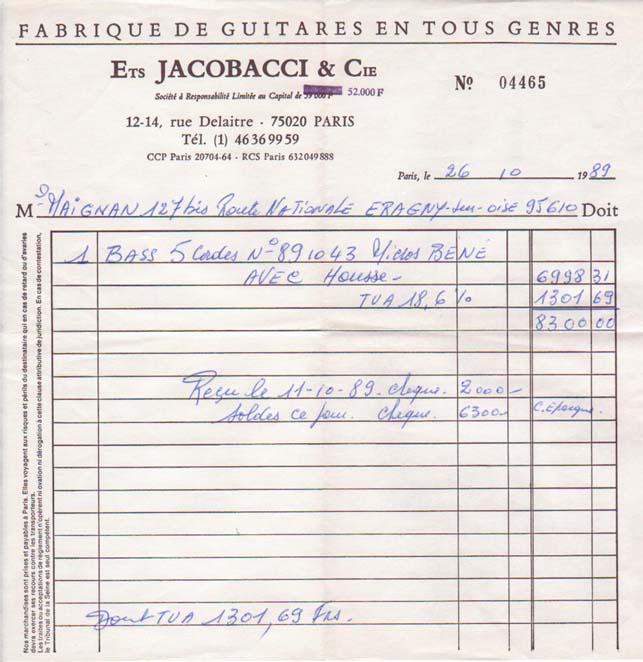 FABRIQUE DE GUITARES EN TOUS GENRES
ETS JACOBACCI & CIE
Société à Responsabilité Limitée au Capital de 39 000 F 52.000 F
Nº 04465
12-14, rue Delaitre - 75020 PARIS
Tél. (1) 46 36 99 59
CCP Paris 20704-64 - RCS Paris 632 049 888
Paris, le 26 10 1989
M MAIGNAN 127 bis Route NATIONALE ERAGNY-sur-OISE 95610 Doit
1 BASS 5 Cordes Nº 891043 Micros BENE
AVEC Housse- 6998 31
TVA 18,6% 1301 69
8300 00
Reçu le 11-10-89. cheque. 2000-
Soldes ce jour. cheque. 6300- C. Epargne.
Dont TVA 1301,69 Frs.
Nos marchandises sont prises et payables à Paris. Elles voyagent aux risques et périls du destinataire qui en cas de retard ou d'avaries
devra exercer ses recours contre les transporteurs.
Les traites ou acceptations de règlement n'opèrent ni novation ni dérogation à cette clause attributive de juridiction. En cas de contestation,
le Tribunal de la Seine est seul compétent.